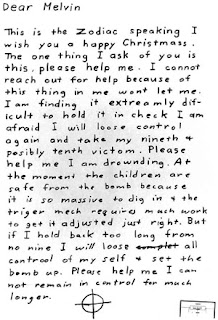 Dear Melvin
This is the Zodiac speaking I
wish you a happy Christmass.
The one thing I ask of you is
this, please help me. I cannot
reach out for help because of
this thing in me wont let me.
I am finding it extreamly dif-
icult to hold it in check I am
afraid I will loose control
again and take my nineth &
posibly tenth victom. Please
help me I am drownding. At
the moment the children are
safe from the bomb because
it is so massive to dig in & the
triger mech requires much work
to get it adjusted just right. But
if I hold back too long from
no nine I will loose all
controol of my self & set the
bomb up. Please help me I can
not remain in control for much
longer.